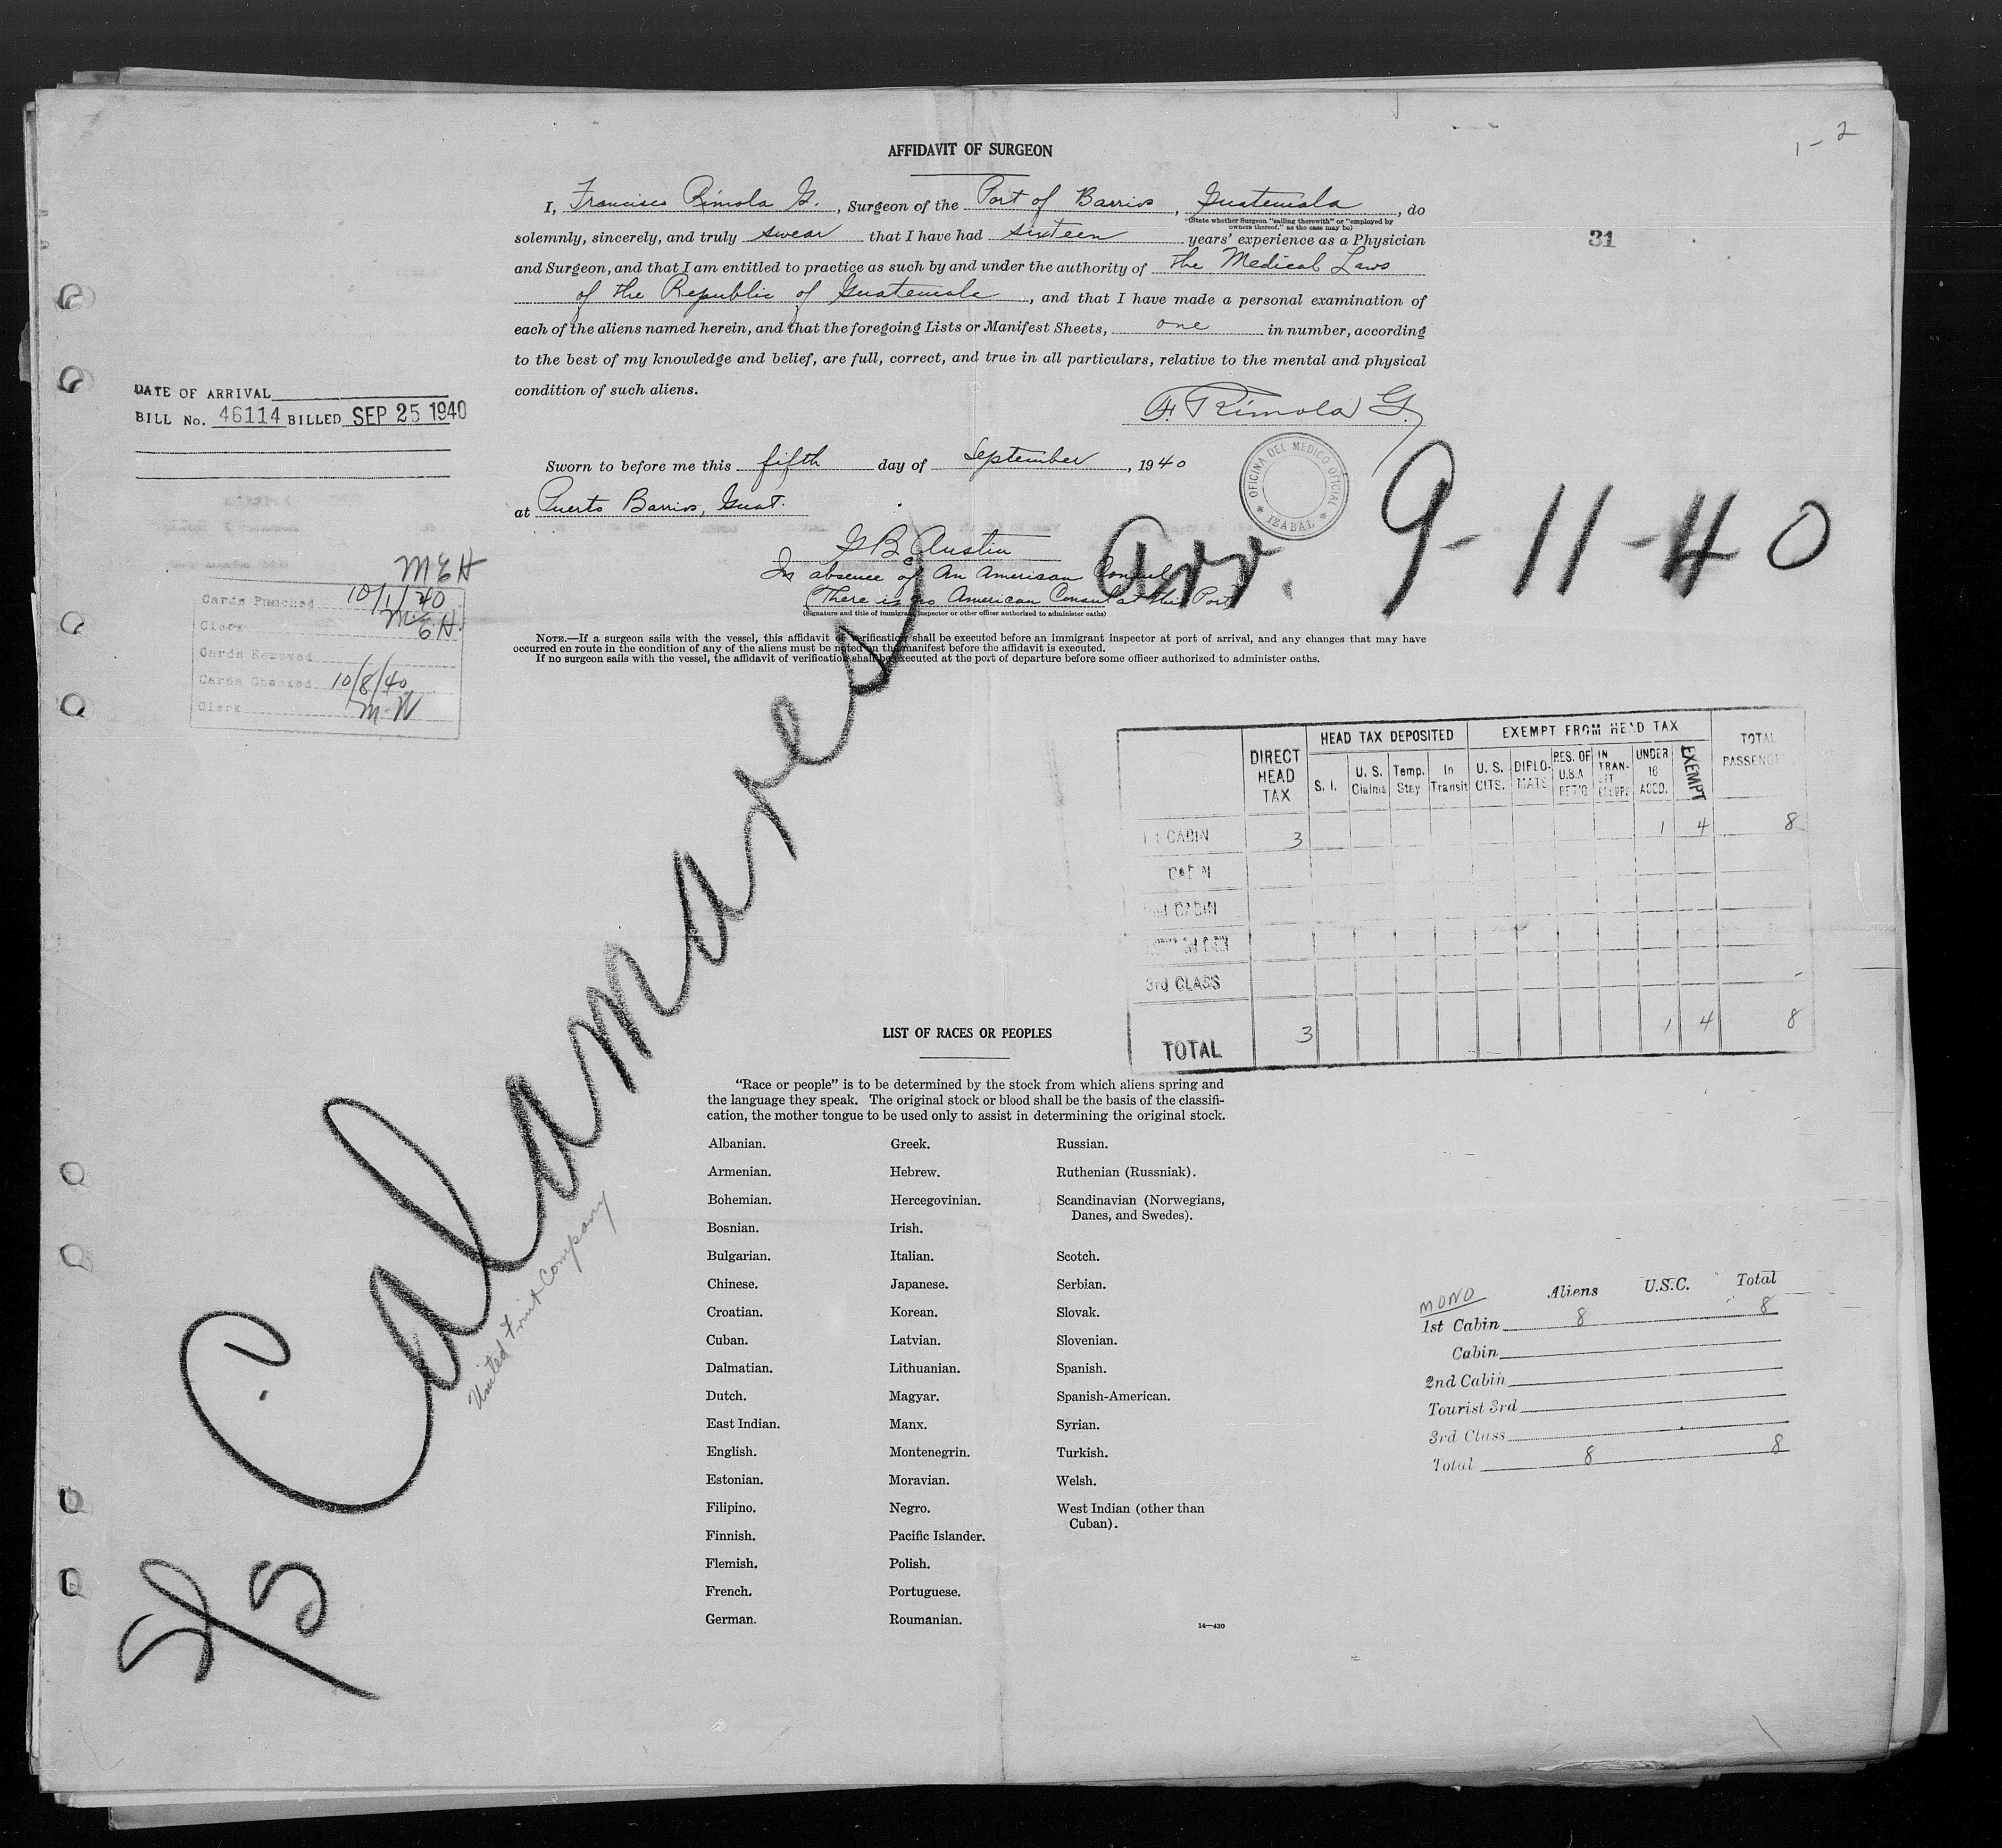 1-2
AFFIDAVIT OF SURGEON
I, Francisco Rímola G., Surgeon of the Port of Barrios, Guatemala, do
(State whether Surgeon "sailing therewith" or "employed by
owners thereof," as the case may be)
solemnly, sincerely, and truly swear that I have had sixteen years' experience as a Physician
31
and Surgeon, and that I am entitled to practice as such by and under the authority of the Medical Laws
of the Republic of Guatemala, and that I have made a personal examination of
each of the aliens named herein, and that the foregoing Lists or Manifest Sheets, one in number, according
to the best of my knowledge and belief, are full, correct, and true in all particulars, relative to the mental and physical
condition of such aliens.
F. Rímola G.
DATE OF ARRIVAL
BILL No. 46114 BILLED SEP 25 1940
Sworn to before me this fifth day of September, 1940
at Puerto Barrios, Guat.
OFICINA DEL MEDICO OFICIAL
IZABAL
Arr. 9-11-40
G B Austin
In absence of An American Consul
(There is no American Consul at this Port)
(Signature and title of immigrant inspector or other officer authorized to administer oaths)
MEH
Cards Punched 10/1/40
Clerk MEH.
Cards Removed
Cards Checked 10/8/40
Clerk M-W
NOTE.—If a surgeon sails with the vessel, this affidavit of verification shall be executed before an immigrant inspector at port of arrival, and any changes that may have
occurred en route in the condition of any of the aliens must be noted on the manifest before the affidavit is executed.
If no surgeon sails with the vessel, the affidavit of verification shall be executed at the port of departure before some officer authorized to administer oaths.
DIRECT HEAD TAX
HEAD TAX DEPOSITED
EXEMPT FROM HEAD TAX
TOTAL PASSENGERS
S. I.
U. S. Claims
Temp. Stay
In Transit
U. S. CITS.
DIPLO- MATS
RES. OF U.S.A RET'G
IN TRAN- SIT
UNDER 16 ACCO.
EXEMPT
1st CABIN 3 1 4 8
CABIN
2nd CABIN
3rd CLASS
TOTAL 3 1 4 8
S/S Calamares
United Fruit Company
LIST OF RACES OR PEOPLES
"Race or people" is to be determined by the stock from which aliens spring and
the language they speak. The original stock or blood shall be the basis of the classifi-
cation, the mother tongue to be used only to assist in determining the original stock.
Albanian.
Armenian.
Bohemian.
Bosnian.
Bulgarian.
Chinese.
Croatian.
Cuban.
Dalmatian.
Dutch.
East Indian.
English.
Estonian.
Filipino.
Finnish.
Flemish.
French.
German.
Greek.
Hebrew.
Hercegovinian.
Irish.
Italian.
Japanese.
Korean.
Latvian.
Lithuanian.
Magyar.
Manx.
Montenegrin.
Moravian.
Negro.
Pacific Islander.
Polish.
Portuguese.
Roumanian.
Russian.
Ruthenian (Russniak).
Scandinavian (Norwegians,
Danes, and Swedes).
Scotch.
Serbian.
Slovak.
Slovenian.
Spanish.
Spanish-American.
Syrian.
Turkish.
Welsh.
West Indian (other than
Cuban).
14—430
MONO Aliens U.S.C. Total
1st Cabin 8 8
Cabin
2nd Cabin
Tourist 3rd
3rd Class
Total 8 8